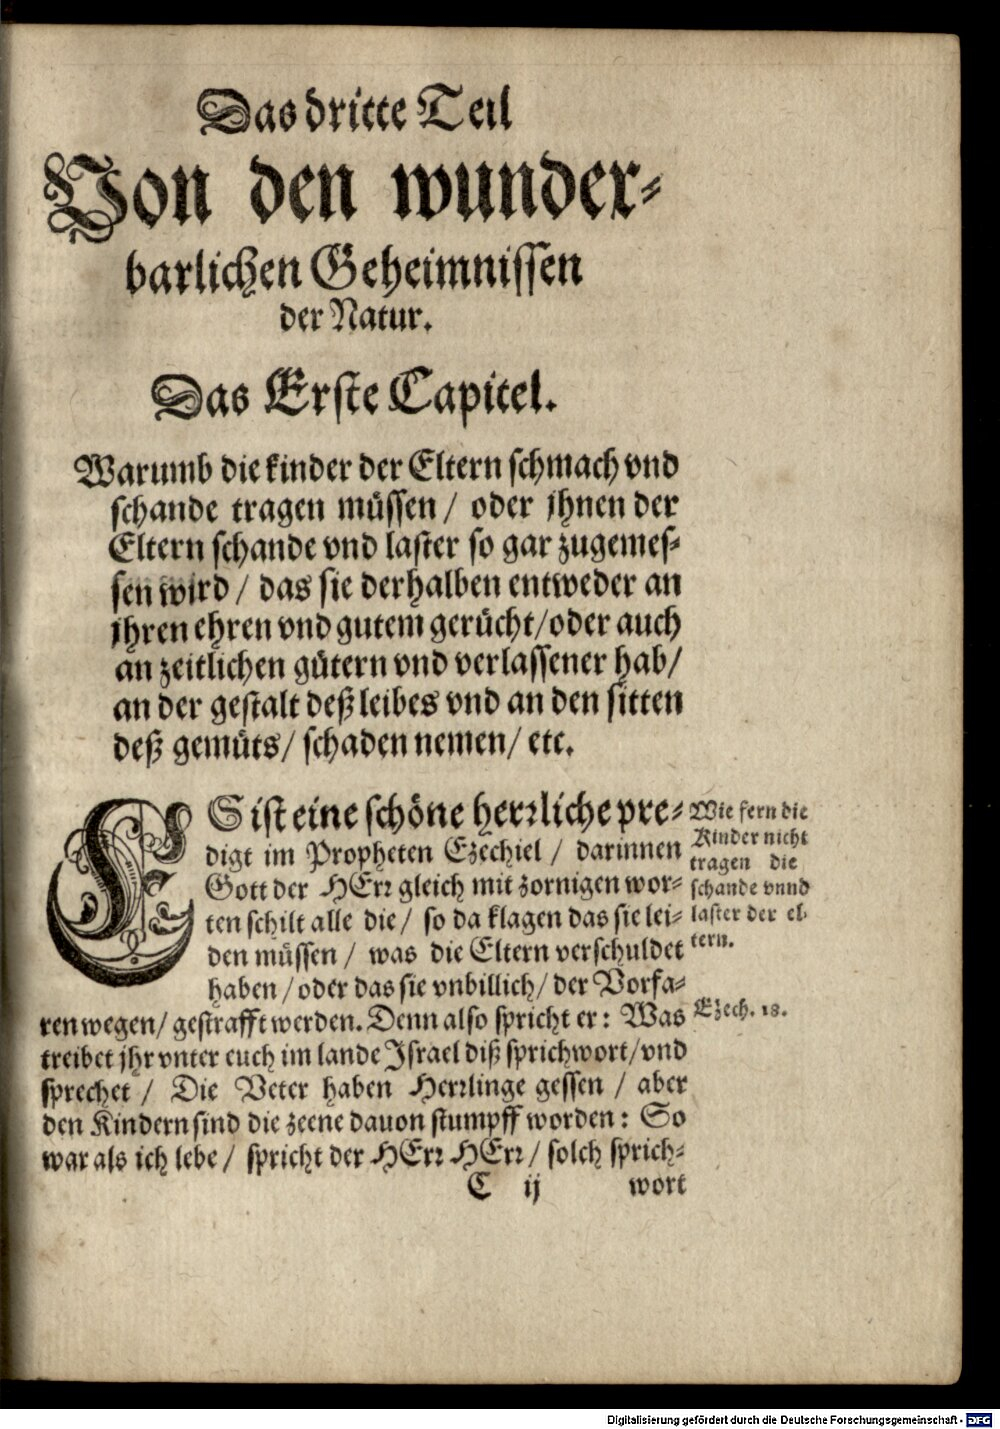 Das dritte Teil
Von den wunder-
barlichen Geheimnissen
der Natur.
Das Erste Capitel.
Warumb die kinder der Eltern schmach vnd
schande tragen müssen / oder jhnen der
Eltern schande vnd laster so gar zugemes-
sen wird / das sie derhalben entweder an
jhren ehren vnd gutem gerücht/oder auch
an zeitlichen gütern vnd verlassener hab/
an der gestalt deß leibes vnd an den sitten
deß gemüts/ schaden nemen/ etc.
ES ist eine schöne herrliche pre-
digt im Propheten Ezechiel / darinnen
Gott der HErr gleich mit zornigen wor-
ten schilt alle die / so da klagen das sie lei-
den müssen / was die Eltern verschuldet
haben / oder das sie vnbillich/ der Vorfa-
ren wegen/ gestrafft werden. Denn also spricht er: Was
treibet jhr vnter euch im lande Jsrael diß sprichwort/vnd
sprechet / Die Veter haben Herrlinge gessen / aber
den Kindern sind die zeene dauon stumpff worden: So
war als ich lebe / spricht der HErr HErr / solch sprich-
C ij wort
Wie fern die
Kinder nicht
tragen die
schande vnnd
laster der el-
tern.
Ezech. 18.
Digitalisierung gefördert durch die Deutsche Forschungsgemeinschaft - DFG